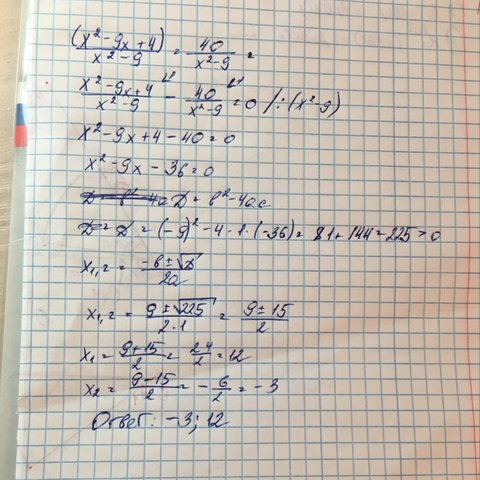 (x²-9x+4)/(x²-9) = 40/(x²-9) =
(x²-9x+4)/(x²-9) - 40/(x²-9) = 0 /:(x²-9)
x²-9x+4-40=0
x²-9x-36=0
D = b²-4a D = b²-4ac
D = D = (-9)²-4·1·(-36) = 81+144=225>0
x₁,₂ = (-b±√D)/2a
x₁,₂ = (9±√225)/(2·1) = (9±15)/2
x₁ = (9+15)/2 = 24/2 = 12
x₂ = (9-15)/2 = -6/2 = -3
Ответ: -3; 12